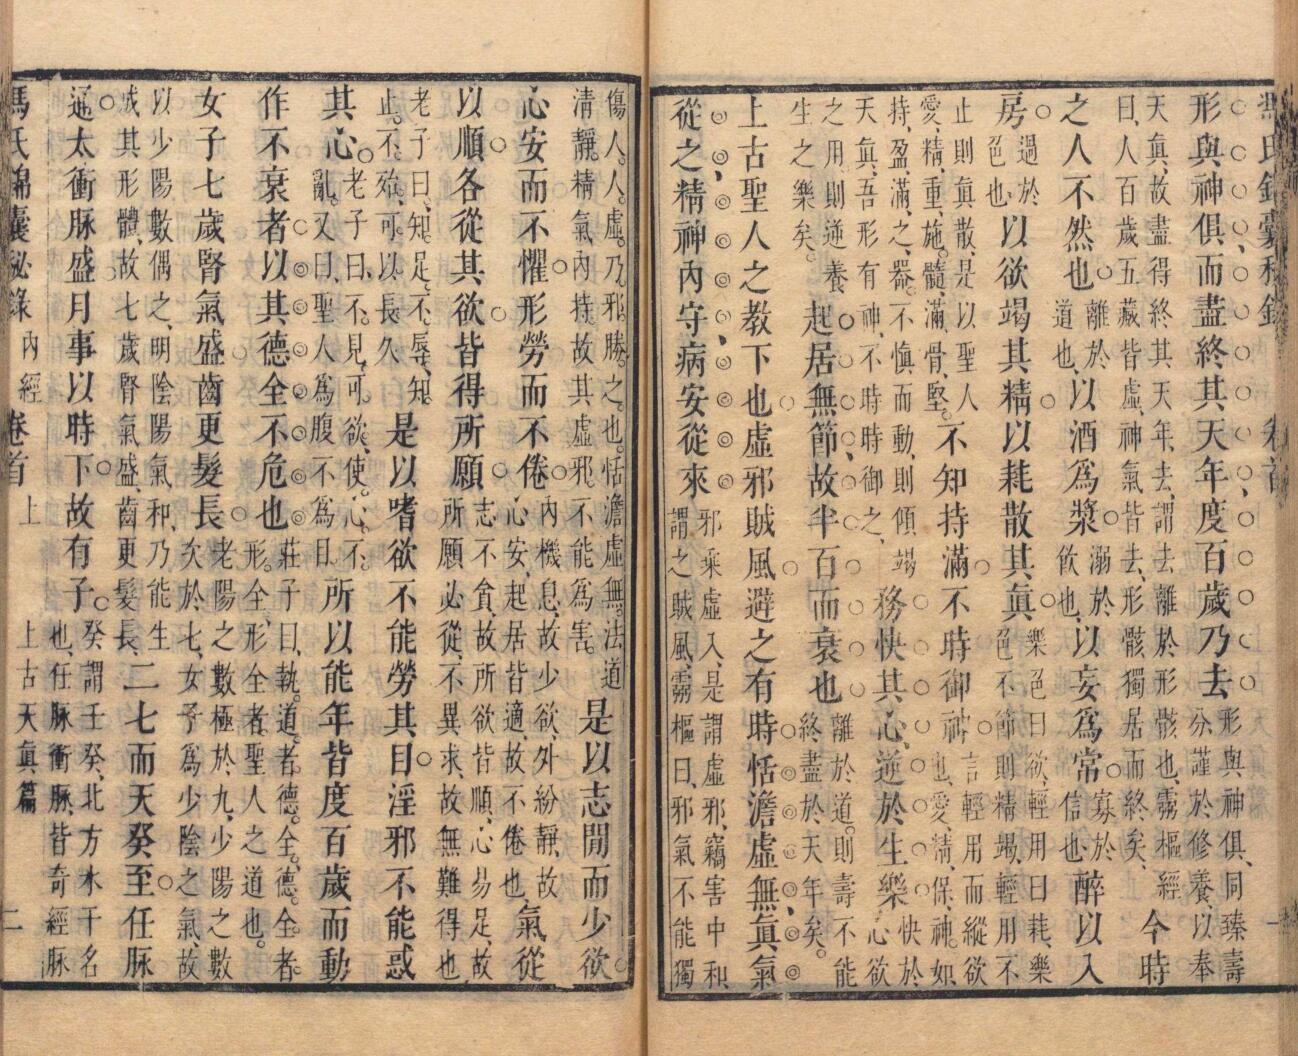 馮氏錦囊秘錄 卷首
形與神俱而盡終其天年度百歲乃去 形與神俱同臻壽
分謹於修養以奉
天眞故盡得終其天年去謂去離於形骸也靈樞經
曰人百歲五藏皆虛神氣皆去形骸獨居而終矣 今時
之人不然也 離於道也 以酒爲漿 溺於飲也 以妄爲常 寡於信也 醉以入
房 過於色也 以欲竭其精以耗散其眞 樂色曰欲輕用曰耗樂
色不節則精竭輕用不
止則眞散是以聖人
愛精重施髓滿骨堅 不知持滿不時御神 言輕用而縱欲
也愛精保神如
持盈滿之器不慎而動則傾竭
天眞吾形有神不時時御之 務快其心逆於生樂 快於心欲
之用則逆養
生之樂矣 起居無節故半百而衰也 離於道則壽不能
終盡於天年矣
上古聖人之教下也虛邪賊風避之有時恬澹虛無眞氣
從之精神內守病安從來 邪乘虛入是謂虛邪竊害中和
謂之賊風靈樞曰邪氣不能獨
傷人人虛乃邪勝之也恬澹虛無法道
清靜精氣內持故其虛邪不能爲害 是以志閒而少欲
心安而不懼形勞而不倦 內機息故少欲外紛靜故
心安起居皆適故不倦也 氣從
以順各從其欲皆得所願 志不貪故所欲皆順心易足故
所願必從不異求故無難得也
老子曰知足不辱知
止不殆可以長久 是以嗜欲不能勞其目淫邪不能惑
其心 老子曰不見可欲使心不
亂又曰聖人爲腹不爲目 所以能年皆度百歲而動
作不衰者以其德全不危也 莊子曰執道者德全德全者
形全形全者聖人之道也
女子七歲腎氣盛齒更髮長 老陽之數極於九少陽之數
次於七女子爲少陰之氣故
以少陽數偶之明陰陽氣和乃能生
成其形體故七歲腎氣盛齒更髮長 二七而天癸至任脉
通太衝脉盛月事以時下故有子 癸謂壬癸北方水干名
也任脉衝脉皆奇經脉
馮氏錦囊秘錄 內經 卷首 上 上古天眞篇 二